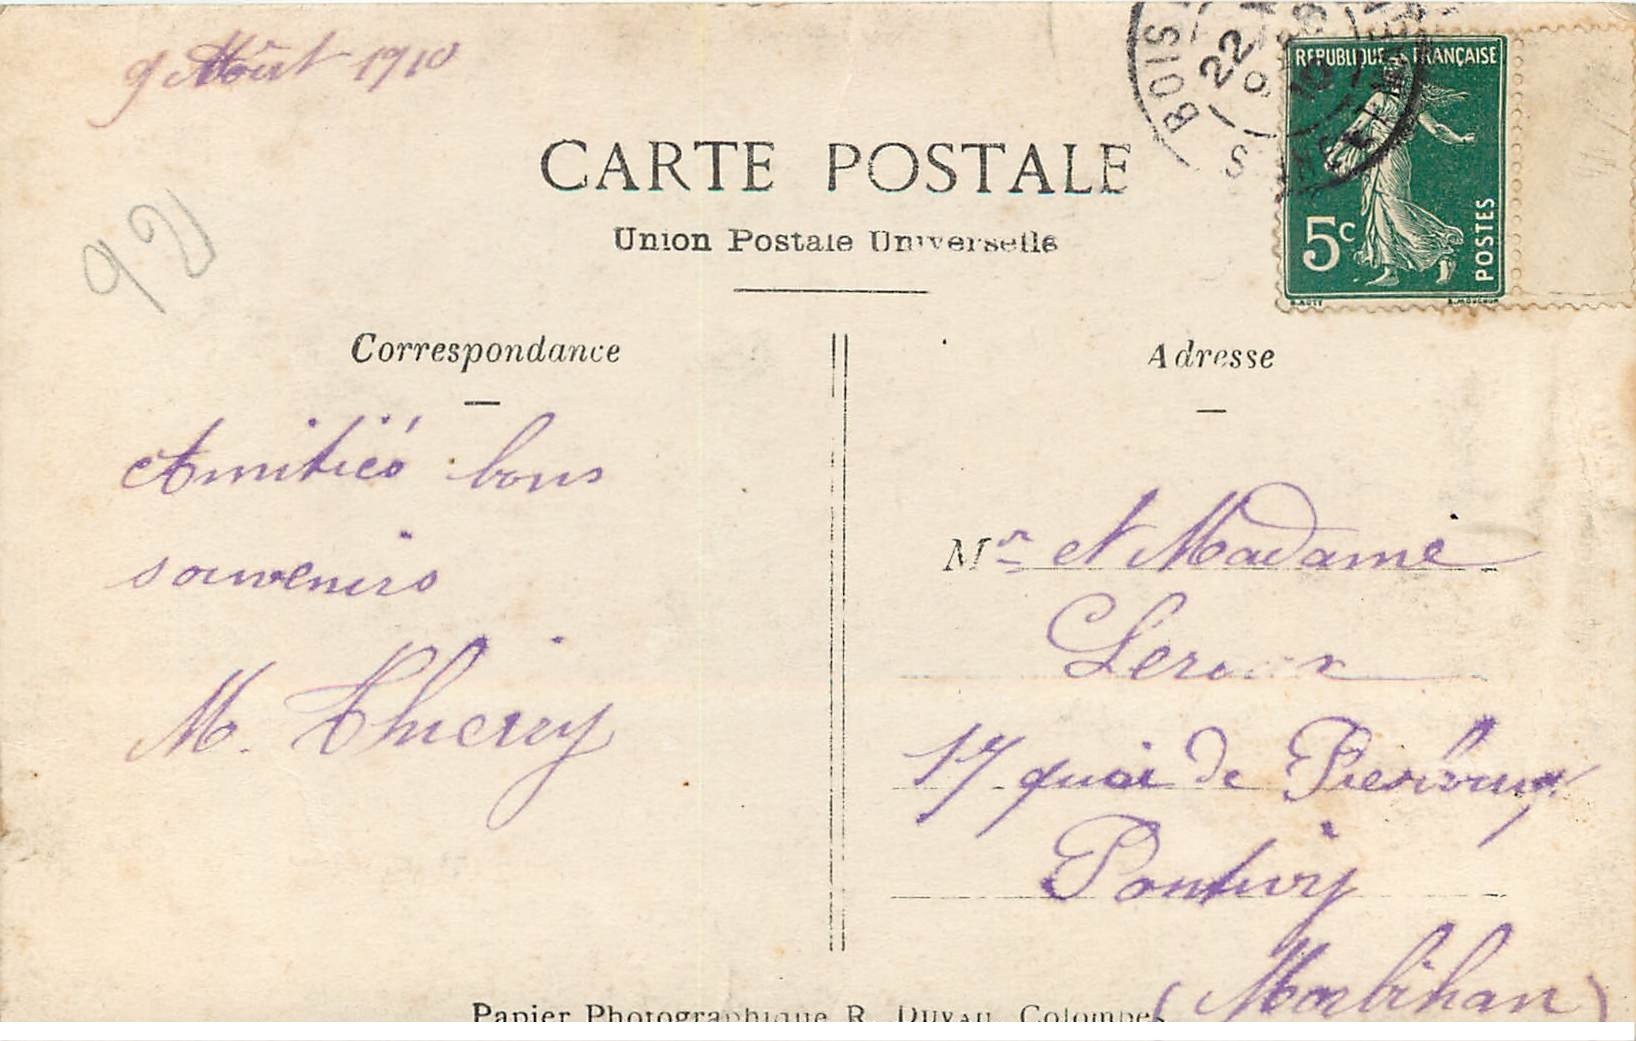 9 Août 1910
BOIS
22
9
10
S
REPUBLIQUE FRANÇAISE
5c
POSTES
CARTE POSTALE
Union Postale Universelle
92
Correspondance
Adresse
Amitiés bons
souvenirs
M. Thierry
Mr et Madame
Leroux
17 quai de
Pontivy
(Morbihan)
Papier Photographique R. DUVAU, Colombes